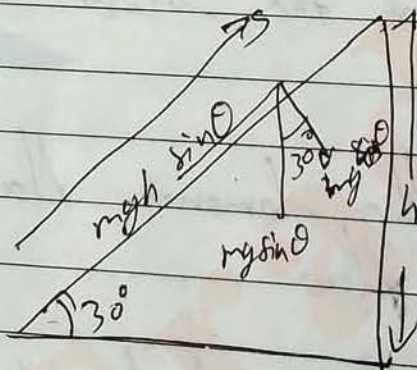 S
mgh sinθ
30°
mg
h
mg sinθ
30°